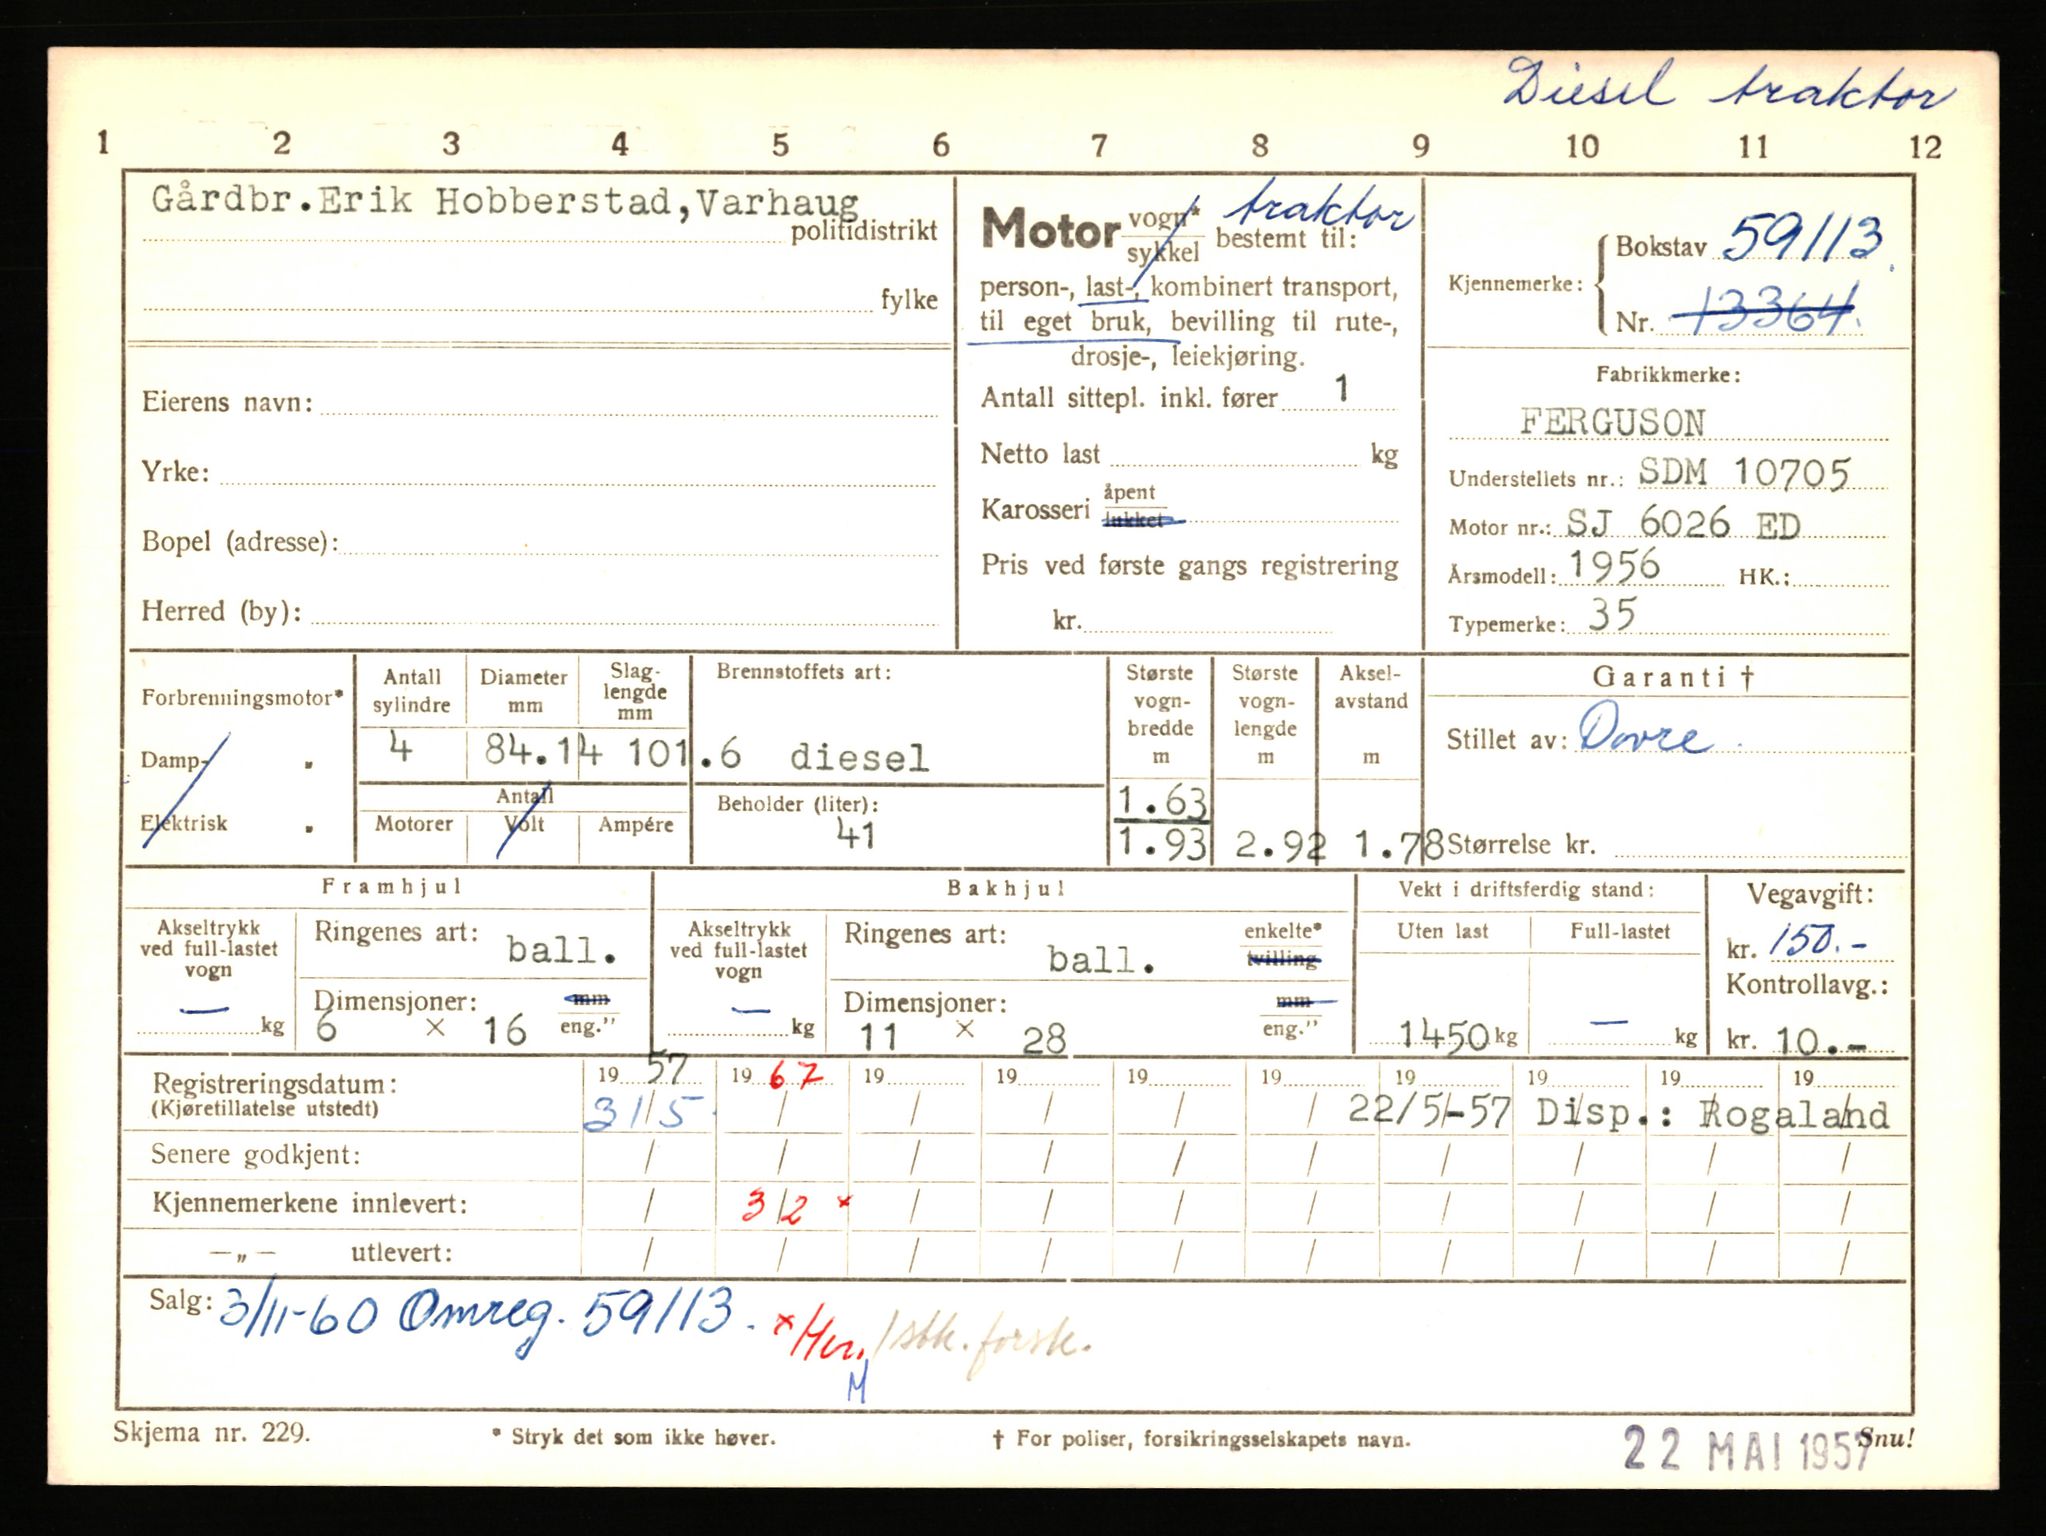 Diesel traktor
1 2 3 4 5 6 7 8 9 10 11 12
Gårdbr.Erik Hobberstad,Varhaug
politidistrikt
fylke
Eierens navn:
Yrke:
Bopel (adresse):
Herred (by):
Motor vogn* / sykkel traktor bestemt til:
person-, last-, kombinert transport,
til eget bruk, bevilling til rute-,
drosje-, leiekjøring.
Antall sittepl. inkl. fører 1
Netto last kg
Karosseri åpent / lukket
Pris ved første gangs registrering
kr.
Kjennemerke: Bokstav 59113.
Nr. 13364.
Fabrikkmerke:
FERGUSON
Understellets nr.: SDM 10705
Motor nr.: SJ 6026 ED
Årsmodell: 1956 HK.:
Typemerke: 35
Forbrenningsmotor*
Damp- „
Elektrisk „
Antall sylindre Diameter mm Slag-lengde mm
4 84.14 101.6 diesel
Antall
Motorer Volt Ampére
Brennstoffets art:
Beholder (liter):
41
Største vogn-bredde m Største vogn-lengde m Aksel-avstand m
1.63
1.93 2.92 1.78
Garanti †
Stillet av: Dovre.
Størrelse kr.
Framhjul
Akseltrykk ved full-lastet vogn
— kg
Ringenes art: ball.
Dimensjoner: mm
6 × 16 eng.”
Bakhjul
Akseltrykk ved full-lastet vogn
— kg
Ringenes art: ball. enkelte* tvilling
Dimensjoner: mm
11 × 28 eng.”
Vekt i driftsferdig stand:
Uten last Full-lastet
1450 kg — kg
Vegavgift:
kr. 150.-
Kontrollavg.:
kr. 10.-
Registreringsdatum: 19 57 19 67 19 19 19 19 19 19 19 19
(Kjøretillatelse utstedt) 31/5. / / / / / 22/5-57 Disp.: Rogaland
Senere godkjent: / / / / / / / / / /
Kjennemerkene innlevert: / 3/2 × / / / / / / / /
—„— utlevert: / / / / / / / / / /
Salg: 3/11-60 Omreg. 59113. × Her. 1 stk. forsk.
M
Skjema nr. 229. * Stryk det som ikke høver. † For poliser, forsikringsselskapets navn. Snu!
22 MAI 1957